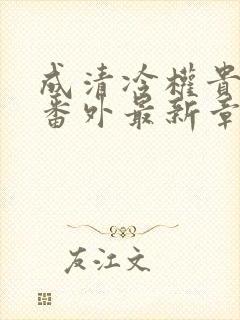 成清冷權貴
番外最新章
友江文